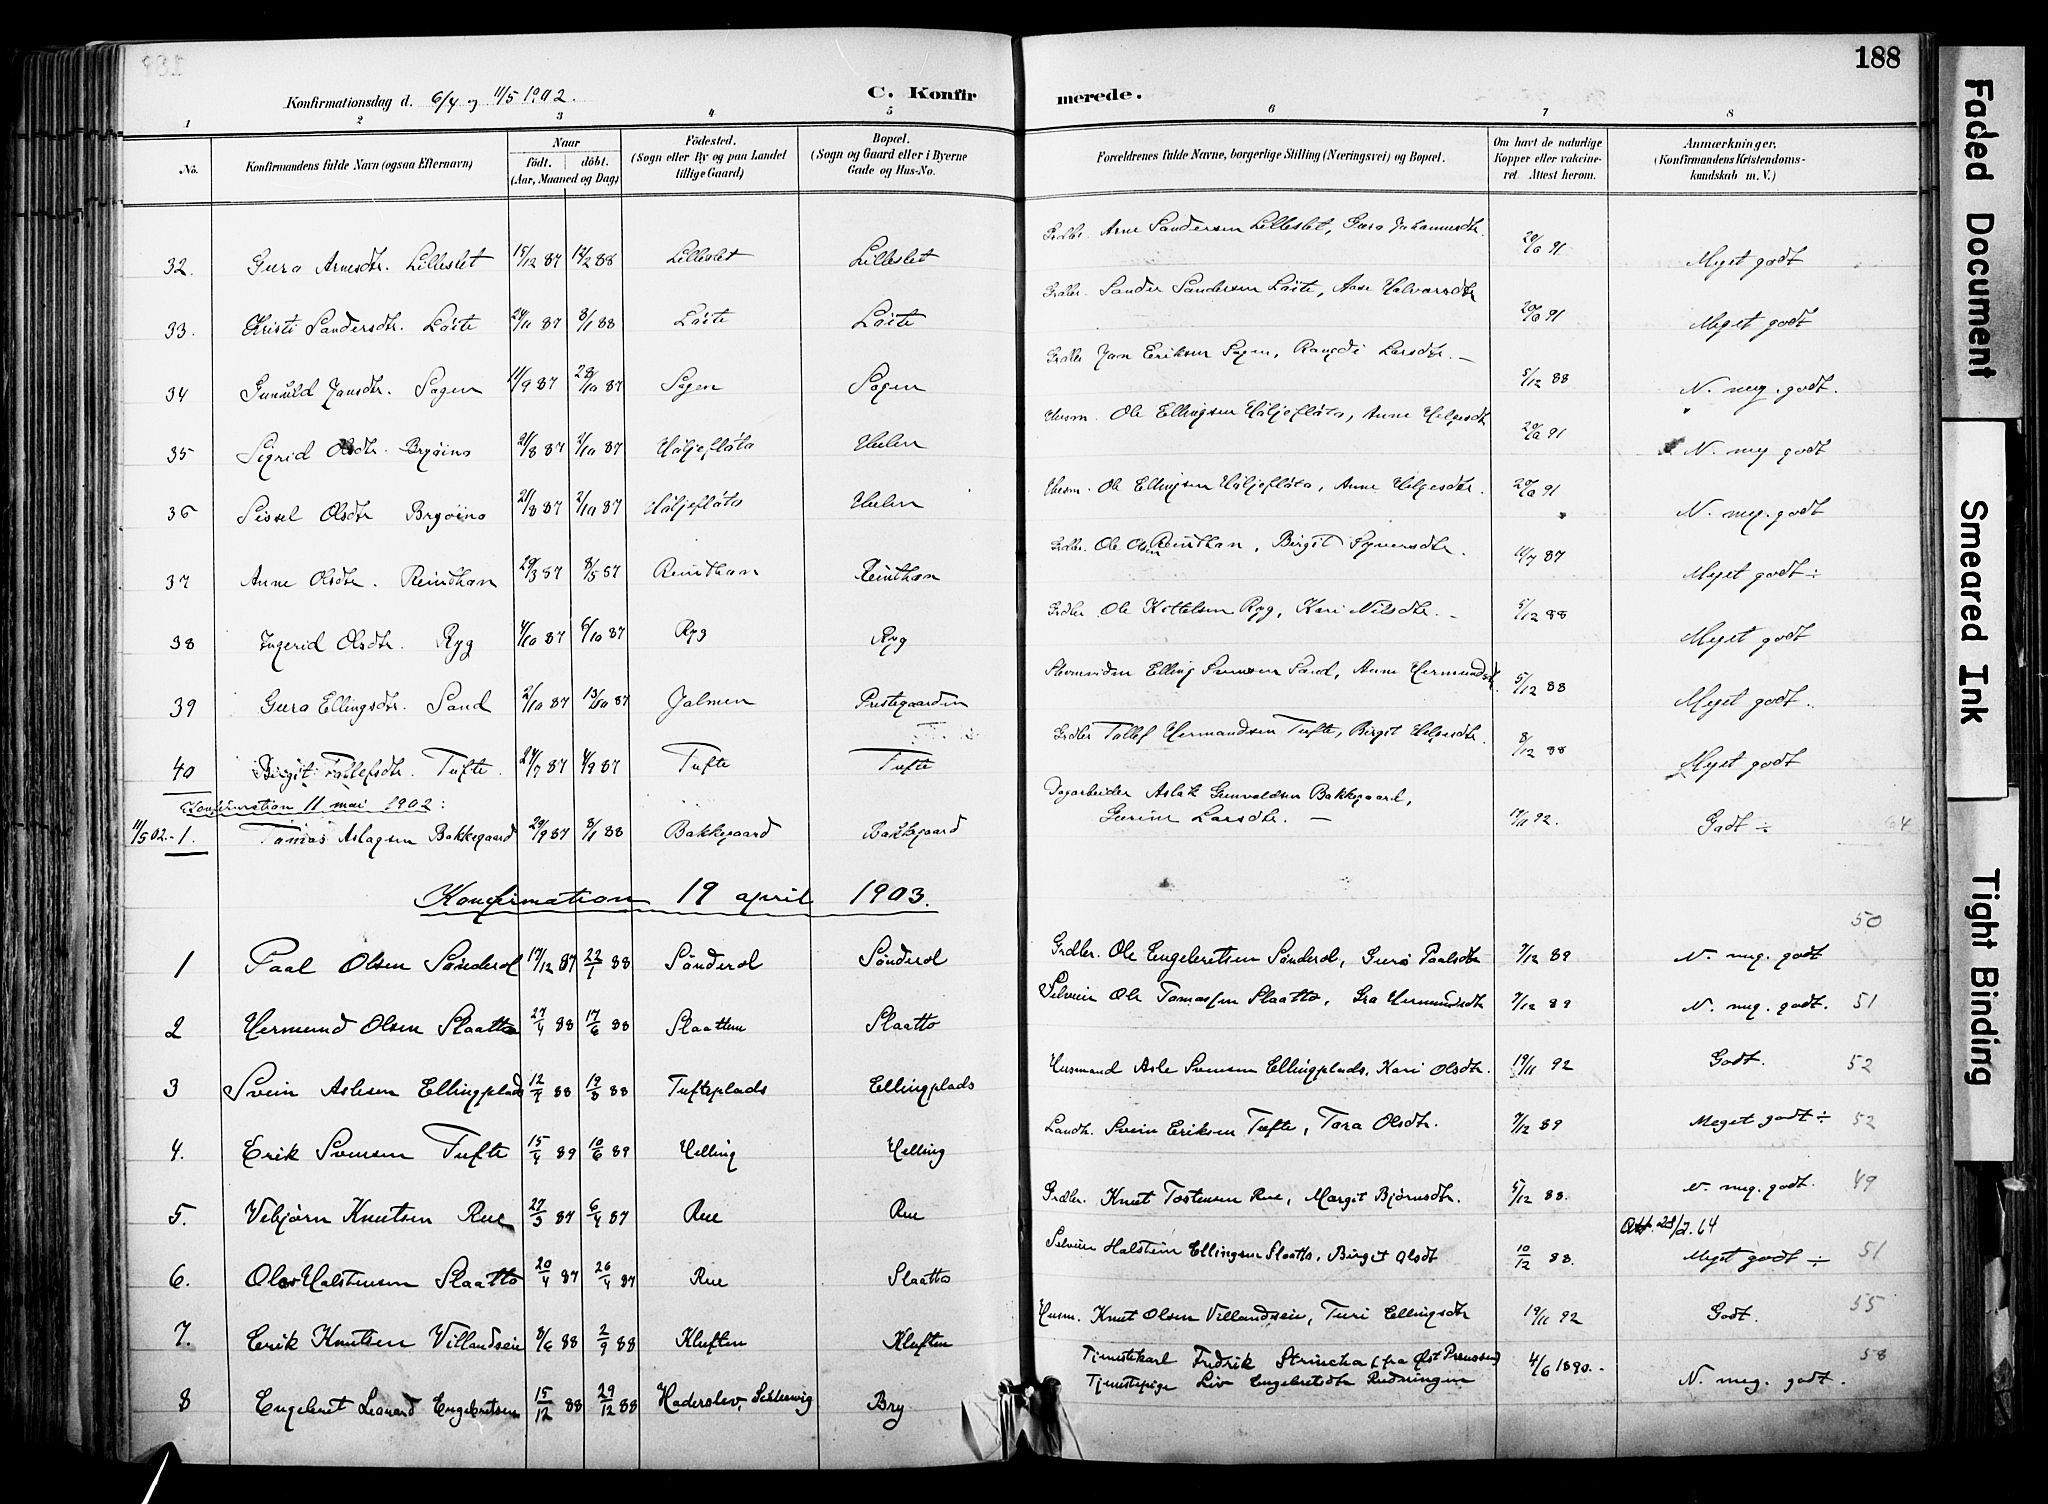 188
Konfirmationsdag d. 6/4 og 11/5 1902.
C. Konfirmerede.
1 2 3 4 5 6 7 8
No. Konfirmandens fulde Navn (ogsaa Efternavn) Naar Födt. döbt. (Aar, Maaned og Dag) Födested. (Sogn eller By og paa Landet tillige Gaard) Bopæl. (Sogn og Gaard eller i Byerne Gade og Hus-No. Forældrenes fulde Navne, borgerlige Stilling (Næringsvei) og Bopæl. Om havt de naturlige Kopper eller vakcineret. Attest herom. Anmærkninger, (Konfirmandens Kristendomskundskab m. V.)
32. Guro Arnesdtr. Lilleslet 15/12 87 12/2 88 Lilleslet Lilleslet Grdbr. Arne Sandersen Lilleslet, Guro Johannesdtr. 20/6 91 Meget godt
33. Kristi Sandersdtr. Löite 24/11 87 8/1 88 Löite Löite Grdbr. Sander Sandersen Löite, Aase Halvorsdtr 20/6 91 Meget godt
34 Gunvild Jonsdtr. Sagen 11/9 87 23/10 87 Sagen Sagen Grdbr Jon Eriksen Sagen, Rangdi Larsdtr. — 5/12 88 N. meg. godt.
35 Sigrid Olsdtr. Bryöino 21/8 87 2/10 87 Höljeflöta Hulen Husm. Ole Ellingsen Höljeflöto, Anne Helgesdtr 20/6 91 N. meg godt
36 Sissel Olsdtr Bryöino 21/8 87 2/10 87 Höljeflöto Hulen Husm. Ole Ellingsen Höljeflöto, Anne Helgesdtr. 20/6 91 N. meg. godt
37 Anne Olsdtr. Reinthon 29/3 87 8/5 87 Reinthon Reinthon Grdbr. Ole Olsen Reinthon, Birgit Syversdtr. 11/7 87 Meget godt ÷
38 Ingerid Olsdtr. Ryg 4/10 87 6/10 87 Ryg Ryg Grdbr Ole Kittelsen Ryg, Kari Nilsdtr. — 5/12 88 Meget godt
39 Guro Ellingsdtr. Sand 2/10 87 13/10 87 Jalmen Prestegaarden Elling Svensen Sand, Anne Hermundsdtr. 5/12 88 Meget godt.
40 Birgit Tollefsdtr. Tufte. 24/7 87 4/9 87 Tufte Tufte Grdbr Tollef Hermandsen Tufte, Birgit Helgesdtr. 8/12 88 Meget godt
Konfirmation 11 mai 1902:
11/5 02.-1. Tomas Aslagsen Bakkegaard 20/9 87 8/1 88 Bakkegaard Bakkegaard Dagarbeider Aslak Gunvaldsen Bakkegaard, Gurine Larsdtr. — 19/11 92. Godt ÷ 64
Konfirmation 19 april 1903.
1 Paal Olsen Sönderol 17/12 87 22/1 88 Sönderol Sönderol Grdbr. Ole Engebretsen Sönderol, Guro Paalsdtr 7/12 89 N. meg. godt 50
2 Hermund Olsen Slaatto 27/4 88 17/6 88 Slaatten Slaatto Selveier Ole Tomassen Slaatto, Gro Hermundsdtr 7/12 89 N. meg. godt. 51
3 Svein Aslesen Ellingplads 12/4 88 19/8 88 Tufteplads Ellingplads Husmand Asle Svensen Ellingplads, Kari Olsdtr. 19/11 92 Godt. 52
4. Erik Svensen Tufte 15/4 89 10/6 89 Helling Helling Landh. Svein Eriksen Tufte, Tora Olsdtr. 7/12 89 Meget godt ÷ 52
5. Vebjörn Knutsen Rue 27/3 87 6/4 87 Rue Rue Grdbr. Knut Tostensen Rue, Margit Björnsdtr. 5/12 88. N. meg. godt. 49
28/2.64
6. Olav Halstensen Slaatto 20/4 87 26/4 87 Rue Slaatto Selveier Halstein Ellingsen Slaatto, Birgit Olsdt 10/12 88. Meget godt ÷ 51
7. Erik Knutsen Villandseie 8/6 88 2/9 88 Kluften Kluften Husm. Knut Olsen Villandseie, Turi Ellingsdtr 19/11 92 Godt. 55
8 Engebret Leonard Engebretsen 15/12 88 29/12 88 Haderslev, Schleswig Bry Tjenestekarl Fredrik Strincha (fra Öst Preussen) Tjenestepige Liv Engebretsdtr Rudningen 4/6 1890.- N. meg. godt. 58
Faded Document
Smeared Ink
Tight Binding